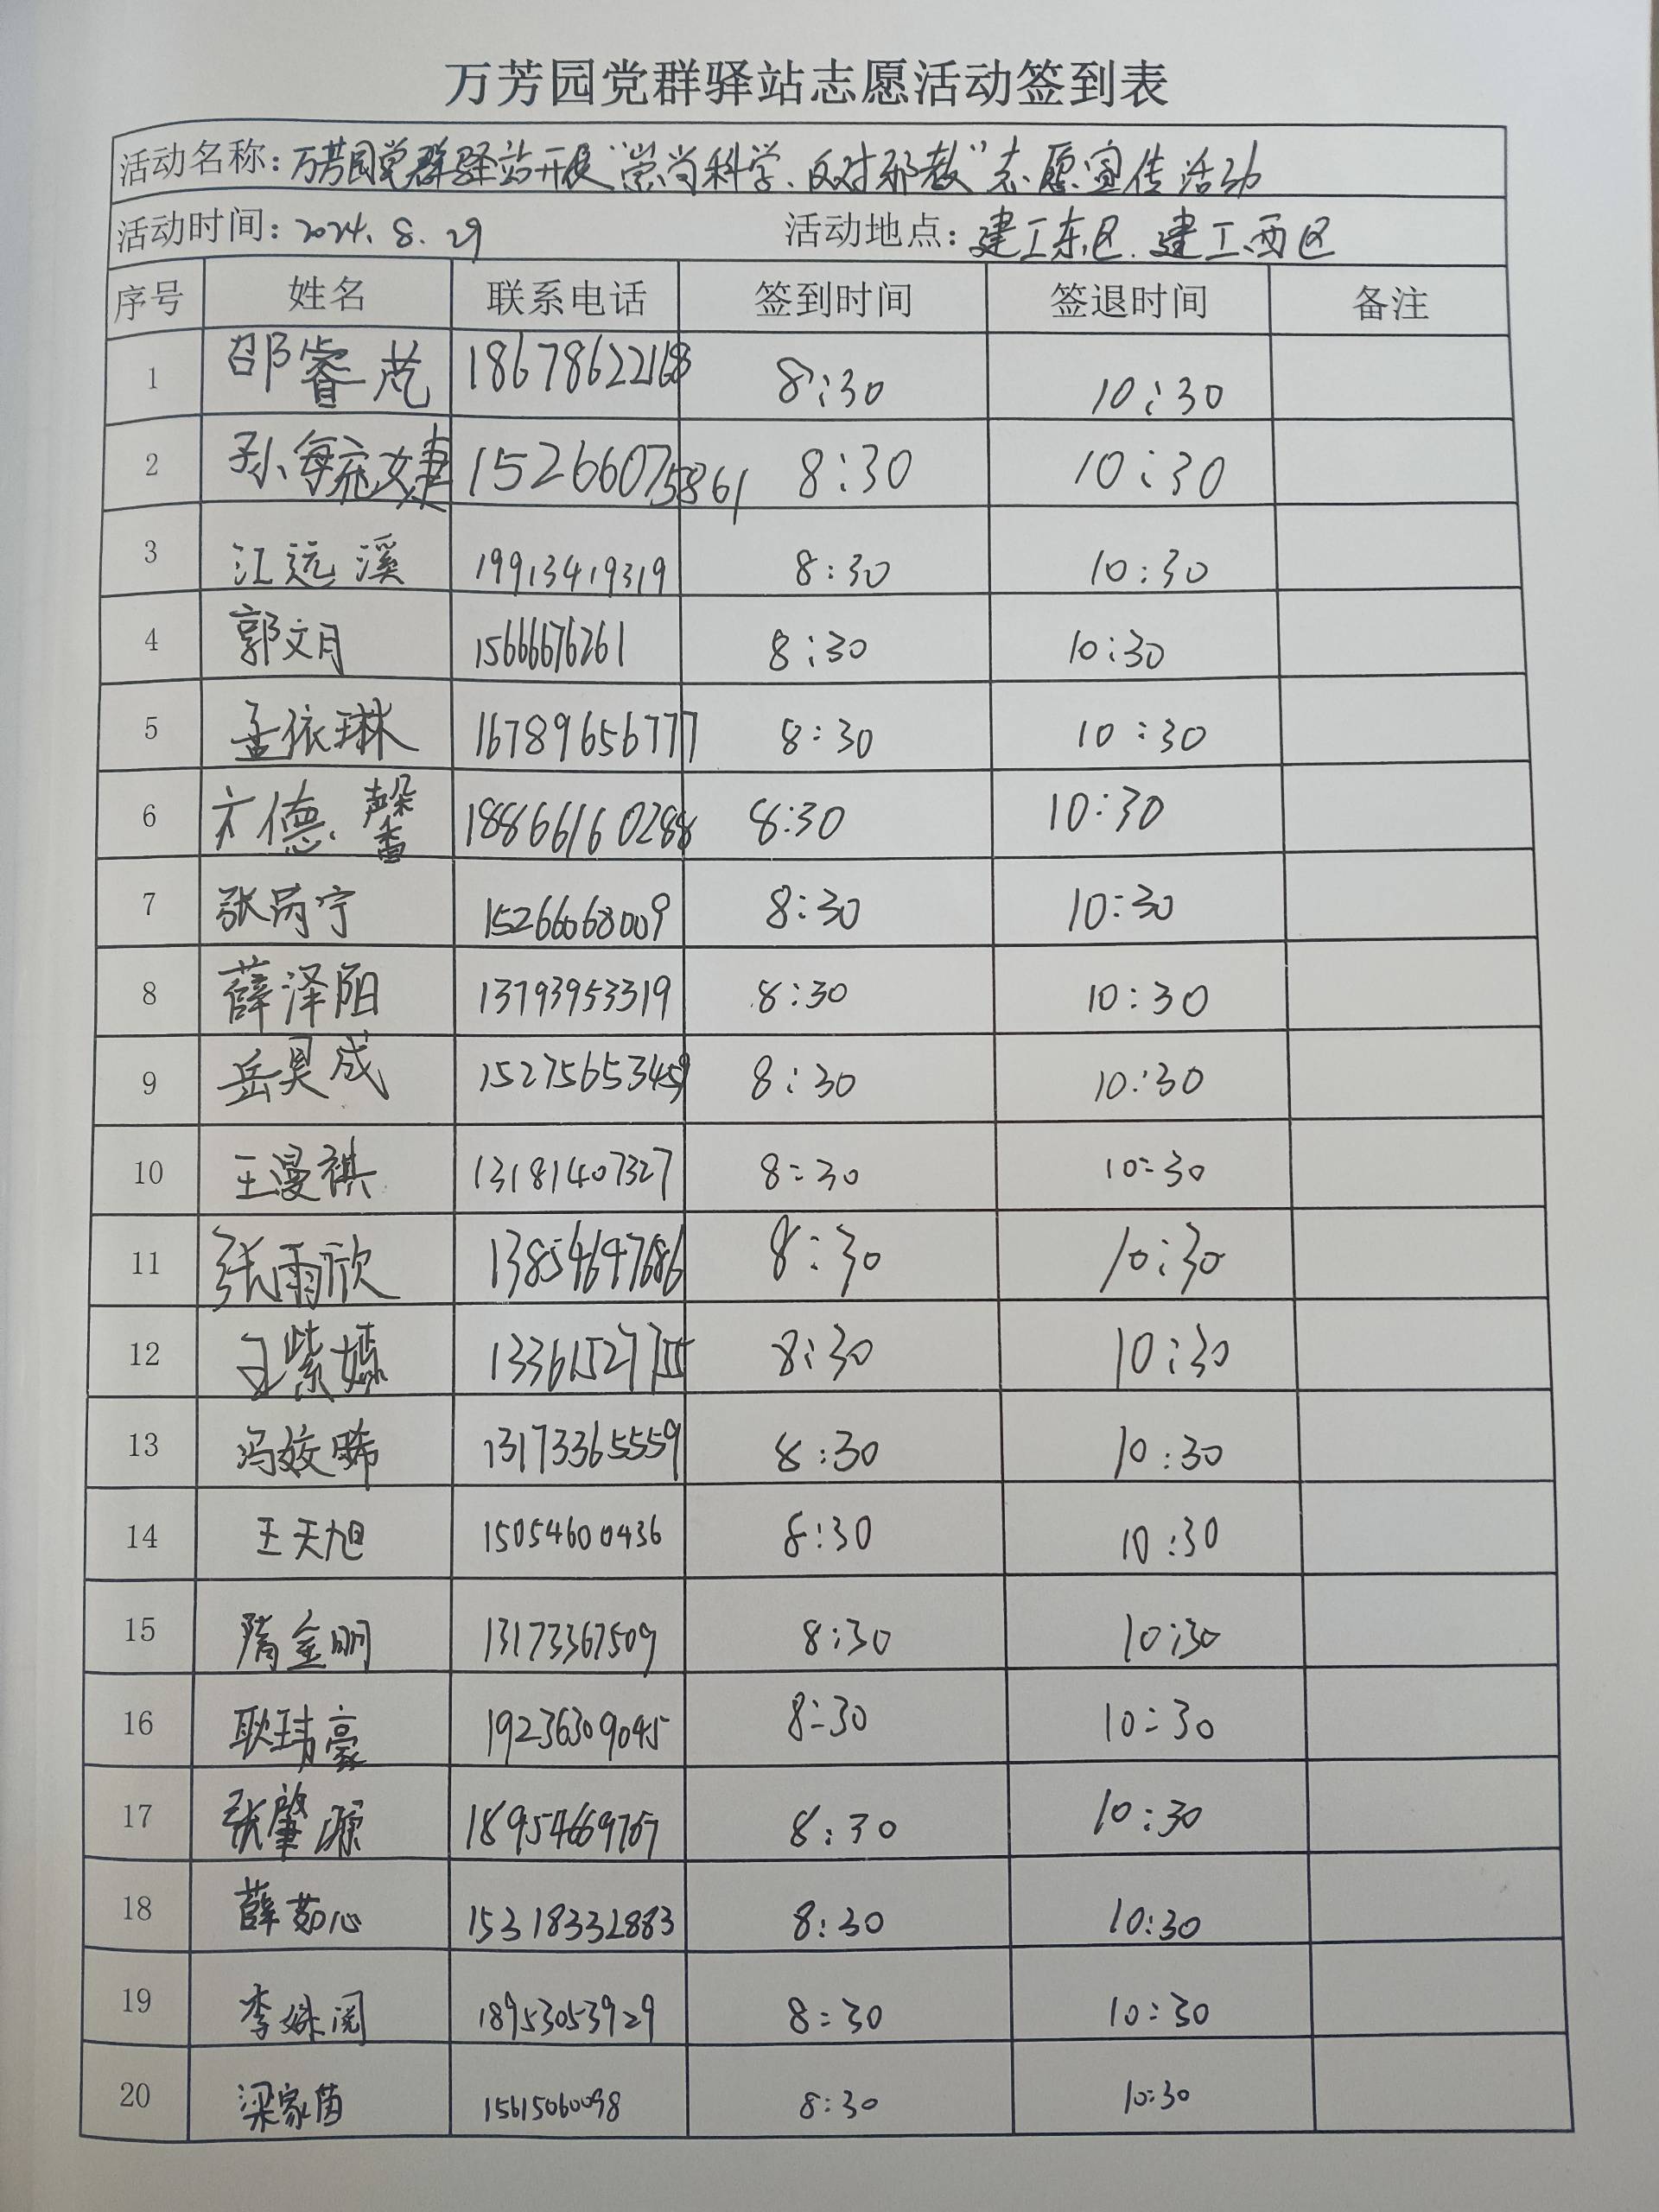 万芳园党群驿站志愿活动签到表
活动名称：万芳园党群驿站开展“崇尚科学、反对邪教”志愿宣传活动
活动时间：2024.8.29 活动地点：建工东区、建工西区
序号 姓名 联系电话 签到时间 签退时间 备注
1 邵睿芃 18678622168 8:30 10:30
2 孙毓婕 15266075861 8:30 10:30
3 江远溪 19913419319 8:30 10:30
4 郭文月 15666676261 8:30 10:30
5 孟依琳 16789656777 8:30 10:30
6 亓德馨 18866160288 8:30 10:30
7 张芮宁 15266068009 8:30 10:30
8 薛泽阳 13793953319 8:30 10:30
9 岳昊成 15275653459 8:30 10:30
10 王漫祺 13181407327 8:30 10:30
11 张雨欣 13854647686 8:30 10:30
12 王紫嫣 13361527755 8:30 10:30
13 冯姣晞 13173365559 8:30 10:30
14 王天旭 15054600436 8:30 10:30
15 隋金明 13173367509 8:30 10:30
16 耿玮豪 19236309045 8:30 10:30
17 张肇源 18954669767 8:30 10:30
18 薛茹心 15318332883 8:30 10:30
19 李姝阅 18953053929 8:30 10:30
20 梁家茵 15615060098 8:30 10:30